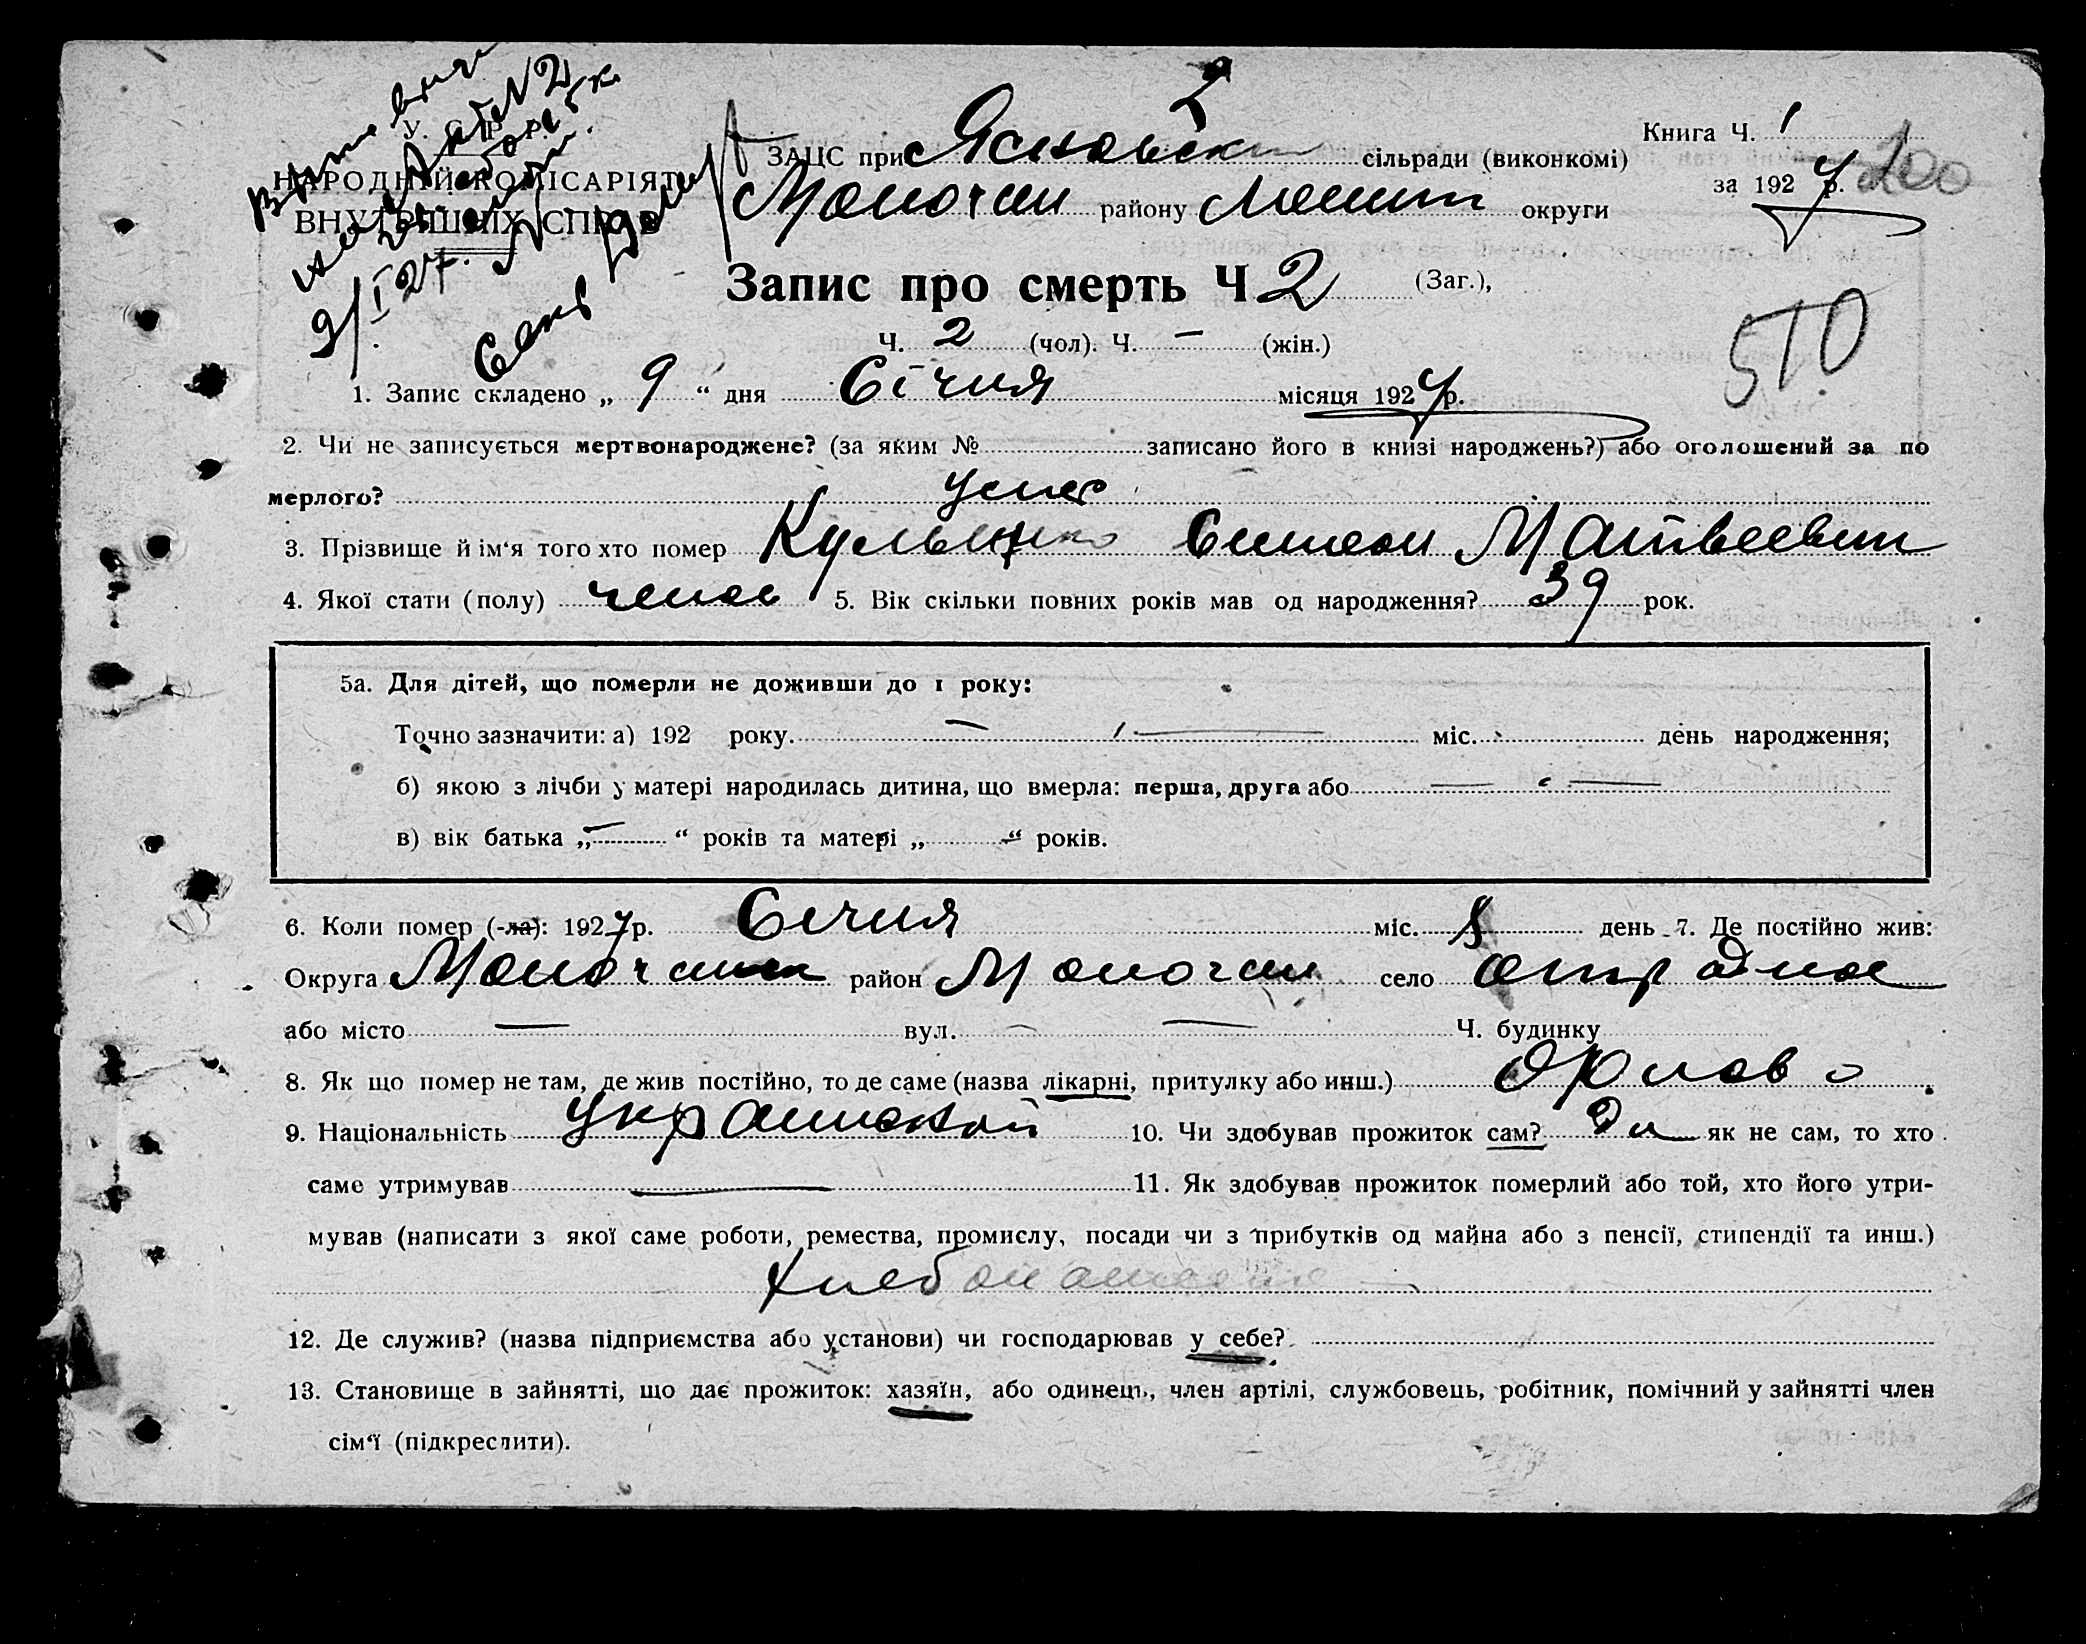 У. С. Р. Р.
НАРОДНІЙ КОМІСАРІЯТ
ВНУТРІШНІХ СПРАВ
9/I 27.
2
ЗАЦС при сільради (виконкомі)
району округи
Книга Ч. 1
за 1927 р. 200
Запис про смерть Ч 2 (Заг.),
Ч. 2 (чол). Ч. — (жін.)
510
1. Запис складено „ 9 “ дня Січня місяця 1927 р.
2. Чи не записується мертвонароджене? (за яким № записано його в книзі народжень?) або оголошений за по
мерлого? умер
3. Прізвище й ім‘я того хто помер Матвеевич
4. Якої стати (полу) 5. Вік скільки повних років мав од народження? 39 рок.
5а. Для дітей, що померли не доживши до 1 року:
Точно зазначити: а) 192 року. — міс. день народження;
б) якою з лічби у матері народилась дитина, що вмерла: перша, друга або —
в) вік батька „ — “ років та матері „ - “ років.
6. Коли помер (-ла): 1927 р. Січня міс. 8 день 7. Де постійно жив:
Округа район село Отрадное
або місто — вул. — Ч. будинку
8. Як що помер не там, де жив постійно, то де саме (назва лікарні, притулку або инш.) Орлово
9. Національність 10. Чи здобував прожиток сам? Да як не сам, то хто
саме утримував — 11. Як здобував прожиток померлий або той, хто його утри-
мував (написати з якої саме роботи, ремества, промислу, посади чи з прибутків од майна або з пенсії, стипендії та инш.)
12. Де служив? (назва підприємства або установи) чи господарював у себе?
13. Становище в зайнятті, що дає прожиток: хазяїн, або одинець, член артілі, службовець, робітник, помічний у зайнятті член
сім‘ї (підкреслити).